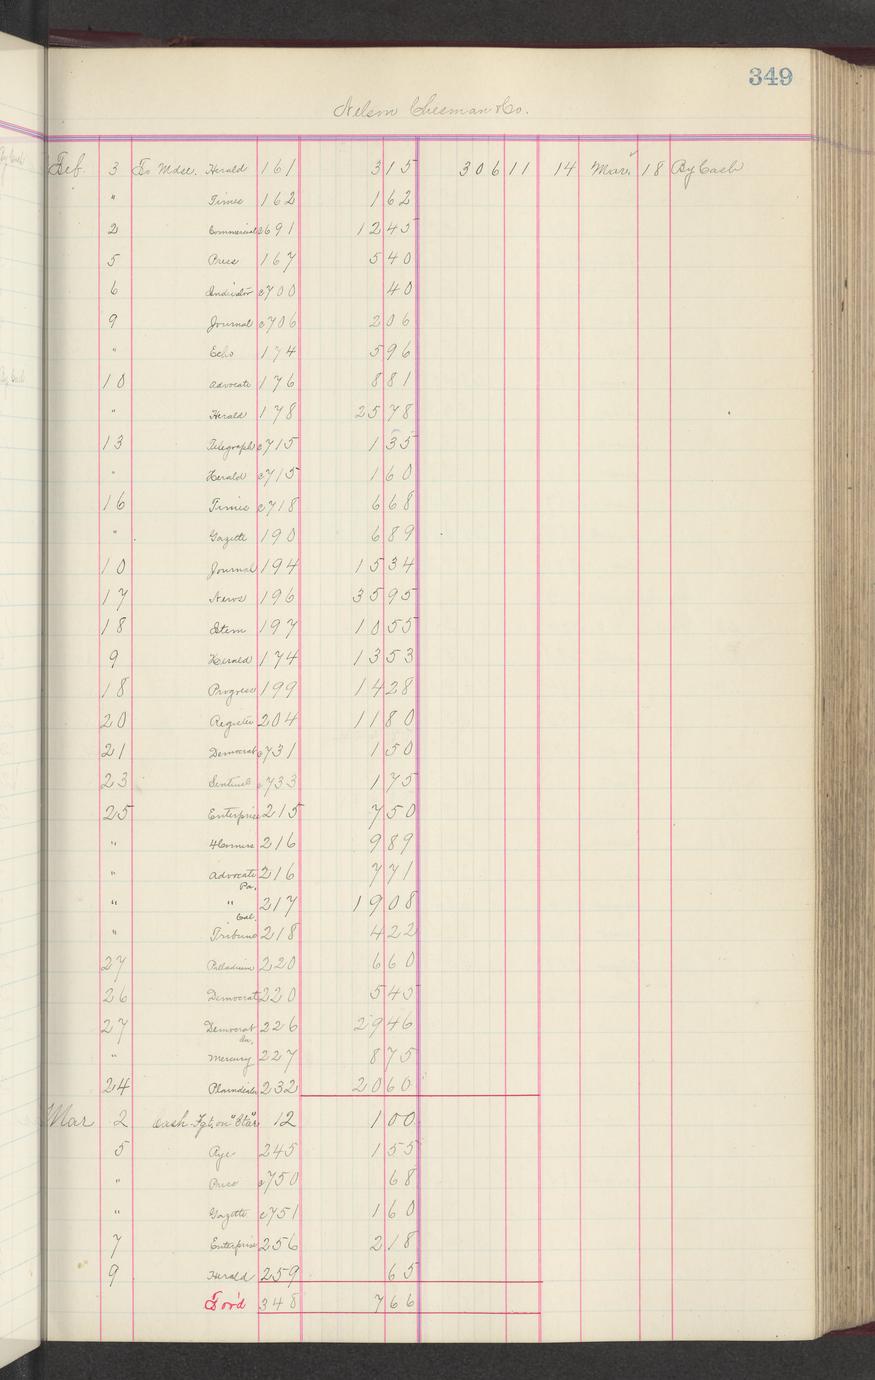 349
Nelson Chesman & Co.
Feb. 3 To Mdse. Herald 161 3 15 306 11 14 Mar. 18 By Cash
" Times 162 1 62
2 Commercial c691 12 45
5 Press 167 5 40
6 Indicator c700 40
9 Journal c706 2 06
" Echo 174 5 96
10 Advocate 176 8 81
" Herald 178 25 78
13 Telegraph c715 1 35
" Herald c715 1 60
16 Times c718 6 68
" Gazette 190 6 89
10 Journal 194 15 34
17 News 196 35 95
18 Item 197 10 55
9 Herald 174 13 53
18 Progress 199 14 28
20 Register 204 11 80
21 Democrat c731 1 50
23 Sentinel c733 1 75
25 Enterprise 215 7 50
" 4 Corners 216 9 89
" Advocate 216 7 71
Pa.
" " 217 19 08
Cal.
" Tribune 218 4 22
27 Palladium 220 6 60
26 Democrat 220 5 45
27 Democrat 226 29 46
" Mercury 227 8 75
24 Plaindealer 232 20 60
Mar 2 Cash Fgt. on "Star" 12 1 00
5 Age 245 1 55
" Press c750 68
" Gazette c751 1 60
7 Enterprise 256 2 18
9 Herald 259 65
For'd 348 7 66